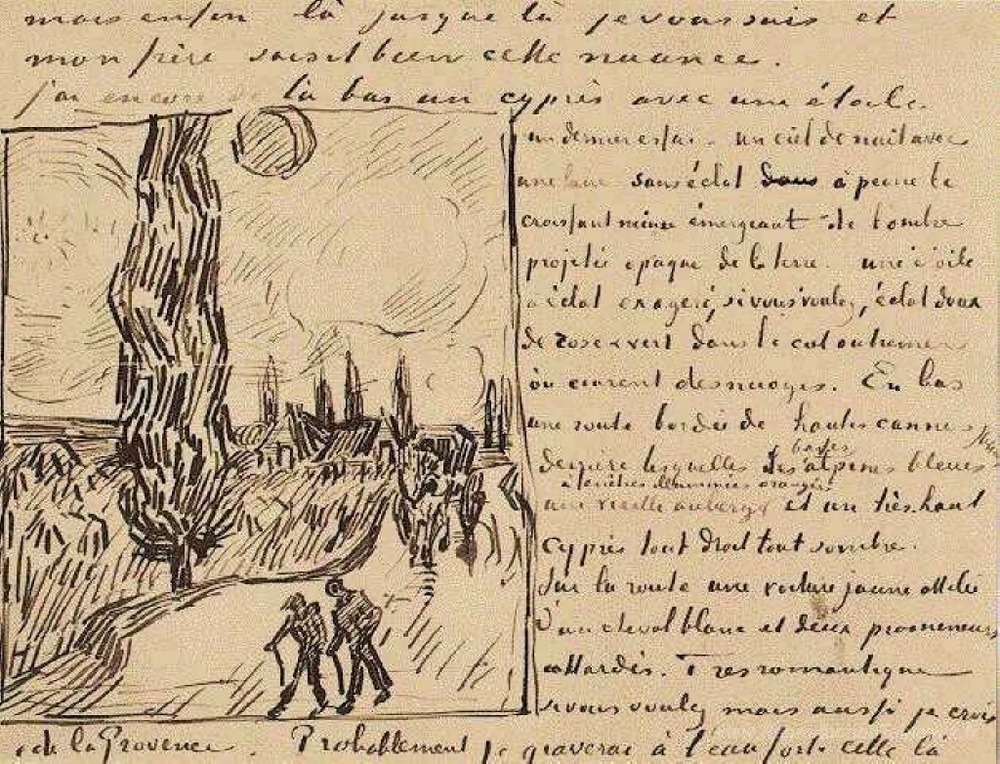 mais enfin là jusque là je vous suis et
mon frère saisit bien cette nuance.
j'ai encore de là bas un cyprès avec une étoile.
un dernier essai - un ciel de nuit avec
une lune sans éclat dans à peine le
croissant mince émergeant de l'ombre
projetée opaque de la terre. une étoile
à éclat exageré, si vous voulez, éclat doux
de rose & vert dans le ciel outremer
où courent des nuages. En bas
une route bordée de hautes cannes
derrière lesquelles les basses alpines bleues
une vieille auberge à fenêtres illuminées orangée et un très haut
cyprès tout droit tout sombre.
Sur la route une voiture jaune attelée
d'un cheval blanc et deux promeneurs
attardés. Très romantique
si vous voulez mais aussi je crois
de la Provence. Probablement je graverai à l'eau forte celle là